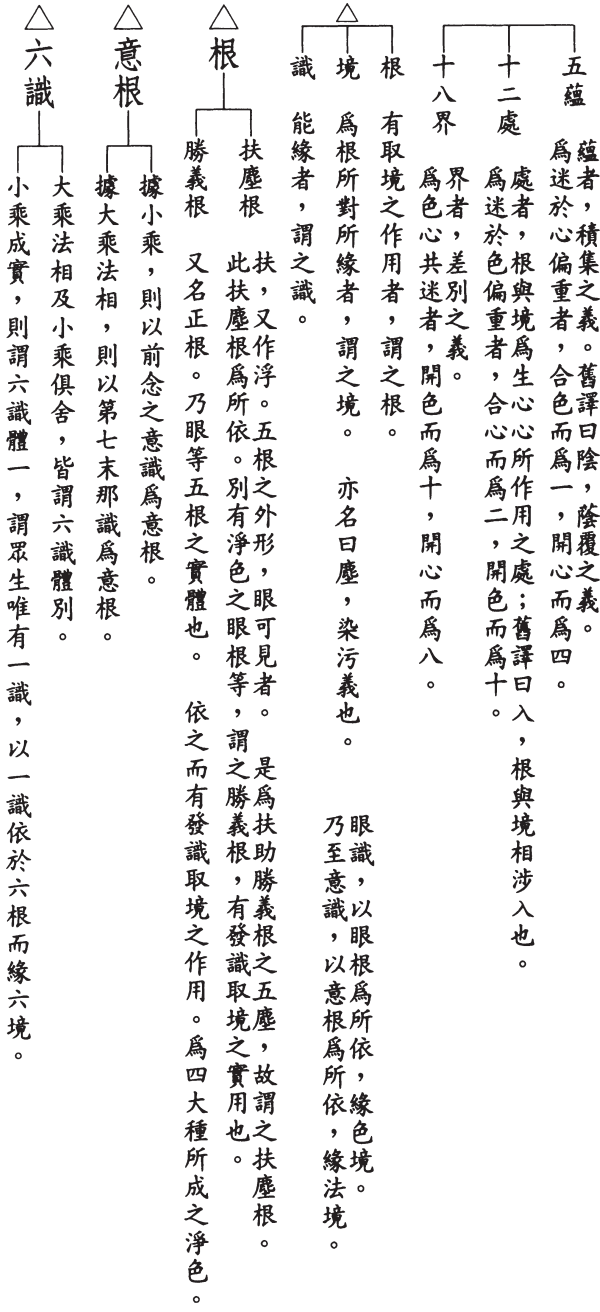 五蘊
蘊者，積集之義。舊譯曰陰，蔭覆之義。
為迷於心偏重者，合色而為一，開心而為四。
十二處
處者，根與境為生心心所作用之處；舊譯曰入，根與境相涉入也。
為迷於色偏重者，合心而為二，開色而為十。
十八界
界者，差別之義。
為色心共迷者，開色而為十，開心而為八。
△
根　有取境之作用者，謂之根。
境　為根所對所緣者，謂之境。　亦名曰塵，染污義也。
識　能緣者，謂之識。
眼識，以眼根為所依，緣色境。
乃至意識，以意根為所依，緣法境。
△根
扶塵根
扶，又作浮。五根之外形，眼可見者。　是為扶助勝義根之五塵，故謂之扶塵根。
此扶塵根為所依。別有淨色之眼根等，謂之勝義根，有發識取境之實用也。
勝義根　又名正根。乃眼等五根之實體也。　依之而有發識取境之作用。為四大種所成之淨色。
△意根
據小乘，則以前念之意識為意根。
據大乘法相，則以第七末那識為意根。
△六識
大乘法相及小乘俱舍，皆謂六識體別。
小乘成實，則謂六識體一，謂眾生唯有一識，以一識依於六根而緣六境。